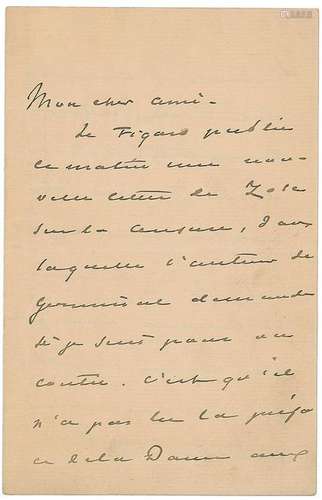 Mon cher ami -
Le Figaro publie
ce matin une nou-
velle lettre de Zola
sur la censure, dans
laquelle l'auteur de
Germinal demande
si je suis pour ou
contre. C'est qu'il
n'a pas lu la préfa
ce de la Dame aux